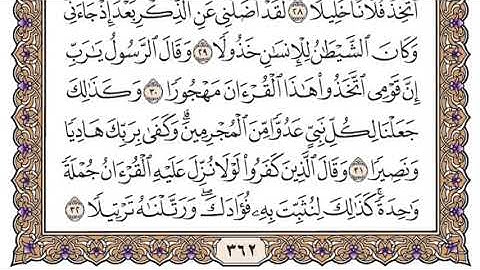 أَتَّخِذْ فُلَانًا خَلِيلًا ٢٨ لَّقَدْ أَضَلَّنِي عَنِ ٱلذِّكْرِ بَعْدَ إِذْ جَآءَنِي
وَكَانَ ٱلشَّيْطَٰنُ لِلْإِنسَٰنِ خَذُولًا ٢٩ وَقَالَ ٱلرَّسُولُ يَٰرَبِّ
إِنَّ قَوْمِى ٱتَّخَذُوا۟ هَٰذَا ٱلْقُرْءَانَ مَهْجُورًا ٣٠ وَكَذَٰلِكَ
جَعَلْنَا لِكُلِّ نَبِىٍّ عَدُوًّا مِّنَ ٱلْمُجْرِمِينَ ۗ وَكَفَىٰ بِرَبِّكَ هَادِيًا
وَنَصِيرًا ٣١ وَقَالَ ٱلَّذِينَ كَفَرُوا۟ لَوْلَا نُزِّلَ عَلَيْهِ ٱلْقُرْءَانُ جُمْلَةً
وَٰحِدَةً ۚ كَذَٰلِكَ لِنُثَبِّتَ بِهِۦ فُؤَادَكَ ۖ وَرَتَّلْنَٰهُ تَرْتِيلًا ٣٢
٣٦٢